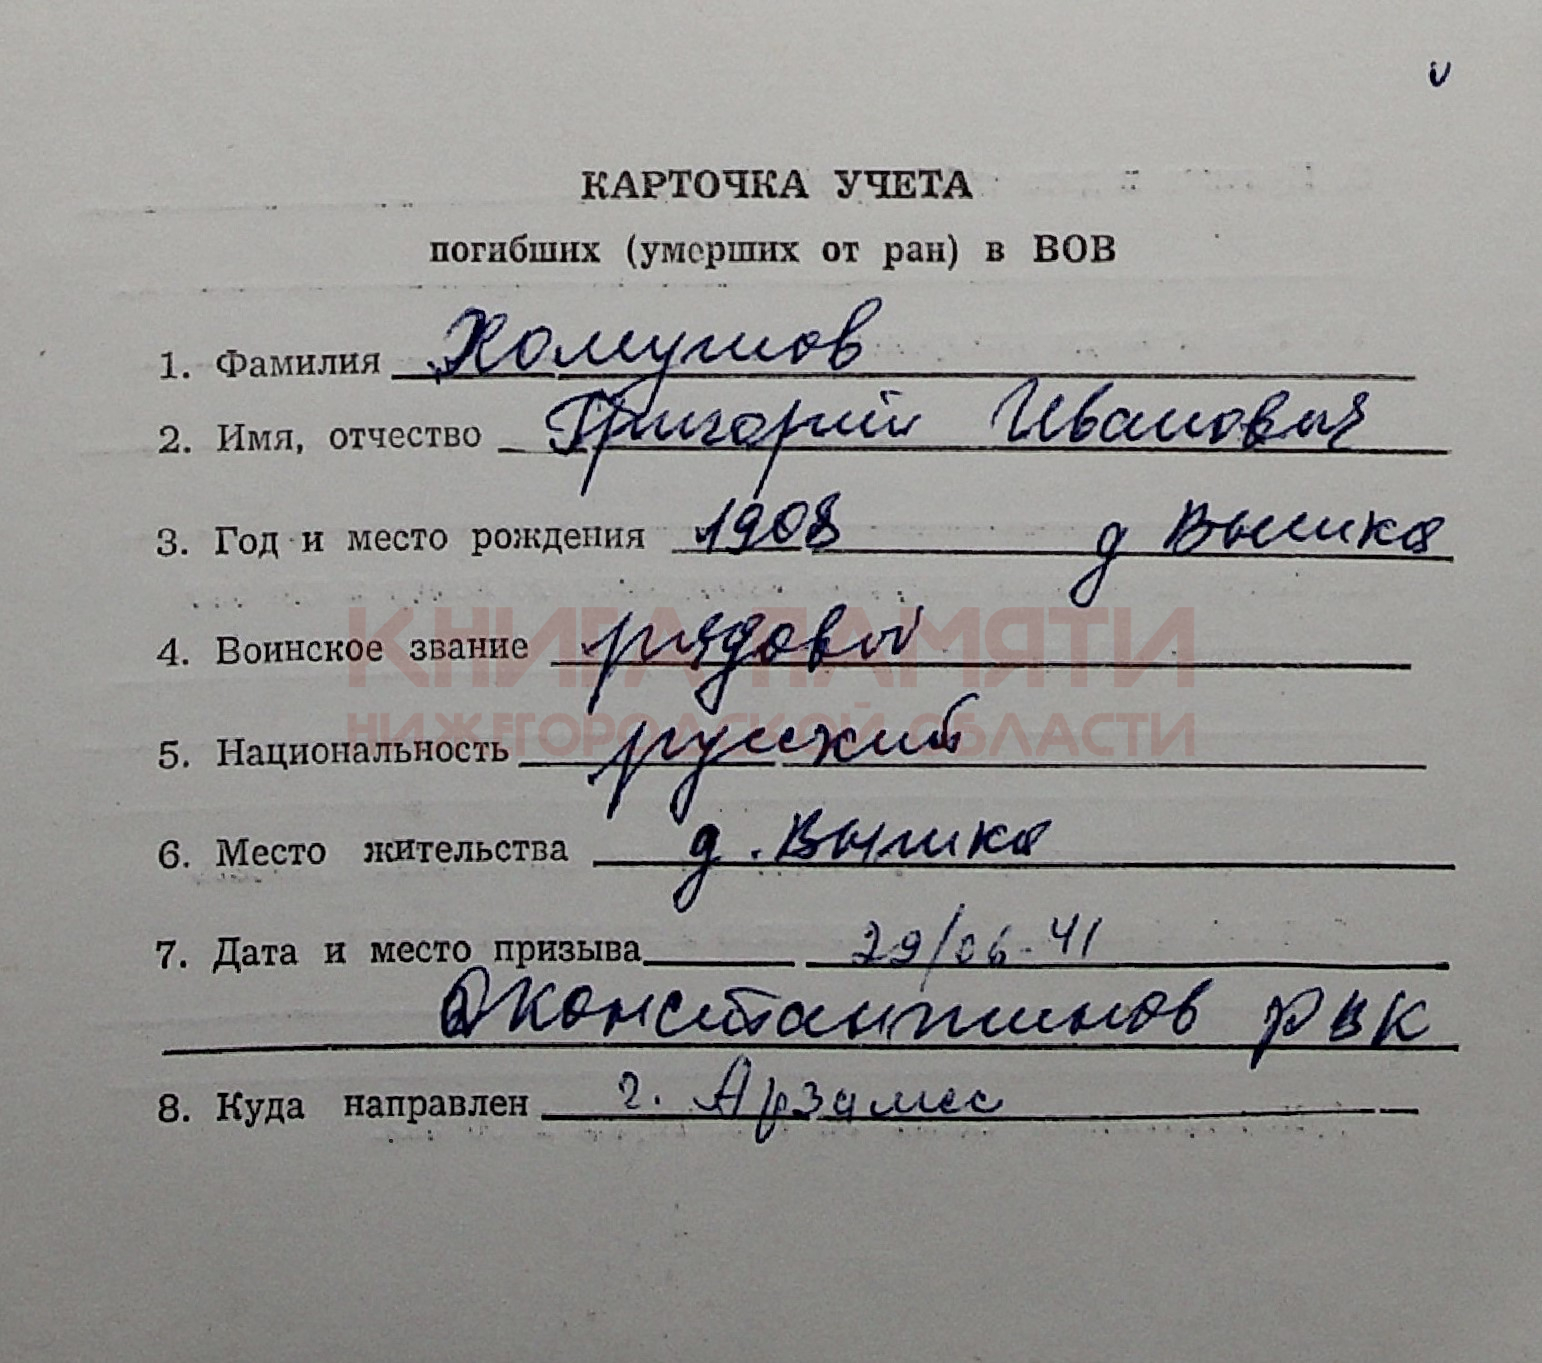 КАРТОЧКА УЧЕТА
погибших (умерших от ран) в ВОВ
1. Фамилия Хомутов
2. Имя, отчество Григорий Иванович
3. Год и место рождения 1908 д Вышка
4. Воинское звание рядовой
КНИГА ПАМЯТИ
НИЖЕГОРОДСКОЙ ОБЛАСТИ
5. Национальность русский
6. Место жительства д. Вышка
7. Дата и место призыва 29/06-41
Константинов РВК
8. Куда направлен г. Арзамас